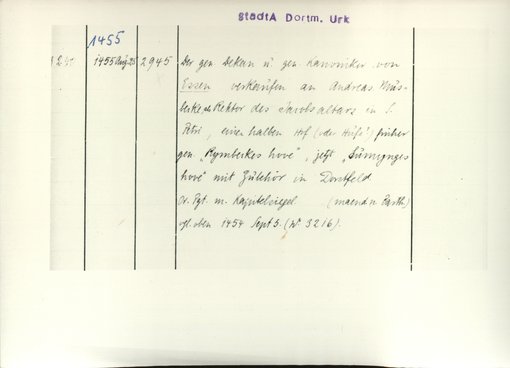 StadtA Dortm. Urk
1455
1455 Aug 25 2945 Der gen Dekan u gen. Kanoniker von
Essen verkaufen an Andreas Müs-
beke als Rektor des Jacobsaltars in S.
Petri, einen halben Hof (oder Hufe!) früher
gen. „Rymbeckes hove", jetzt
hove" mit Zubehör in Dorstfeld
Or. Pgt. m. Kapitelsiegel
vgl. oben 1454 Sept 5. (Nr 3216).